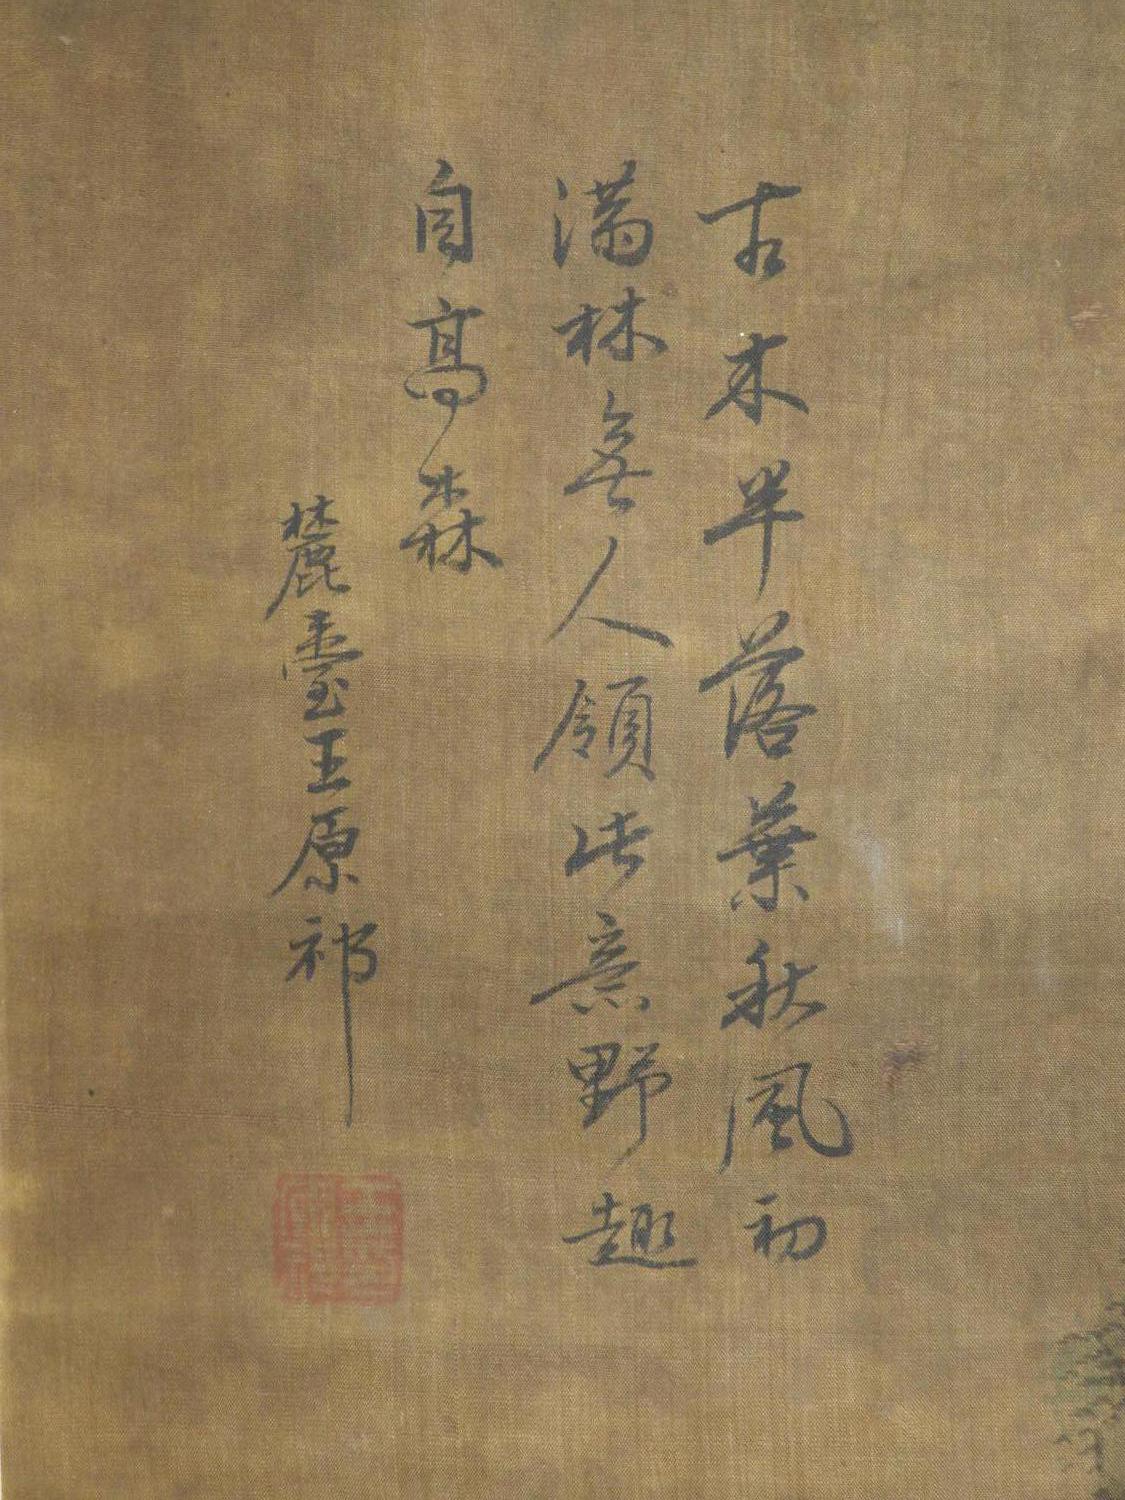 古木半落葉秋風初
滿林無人領此意野趣
自高森
麓臺王原祁